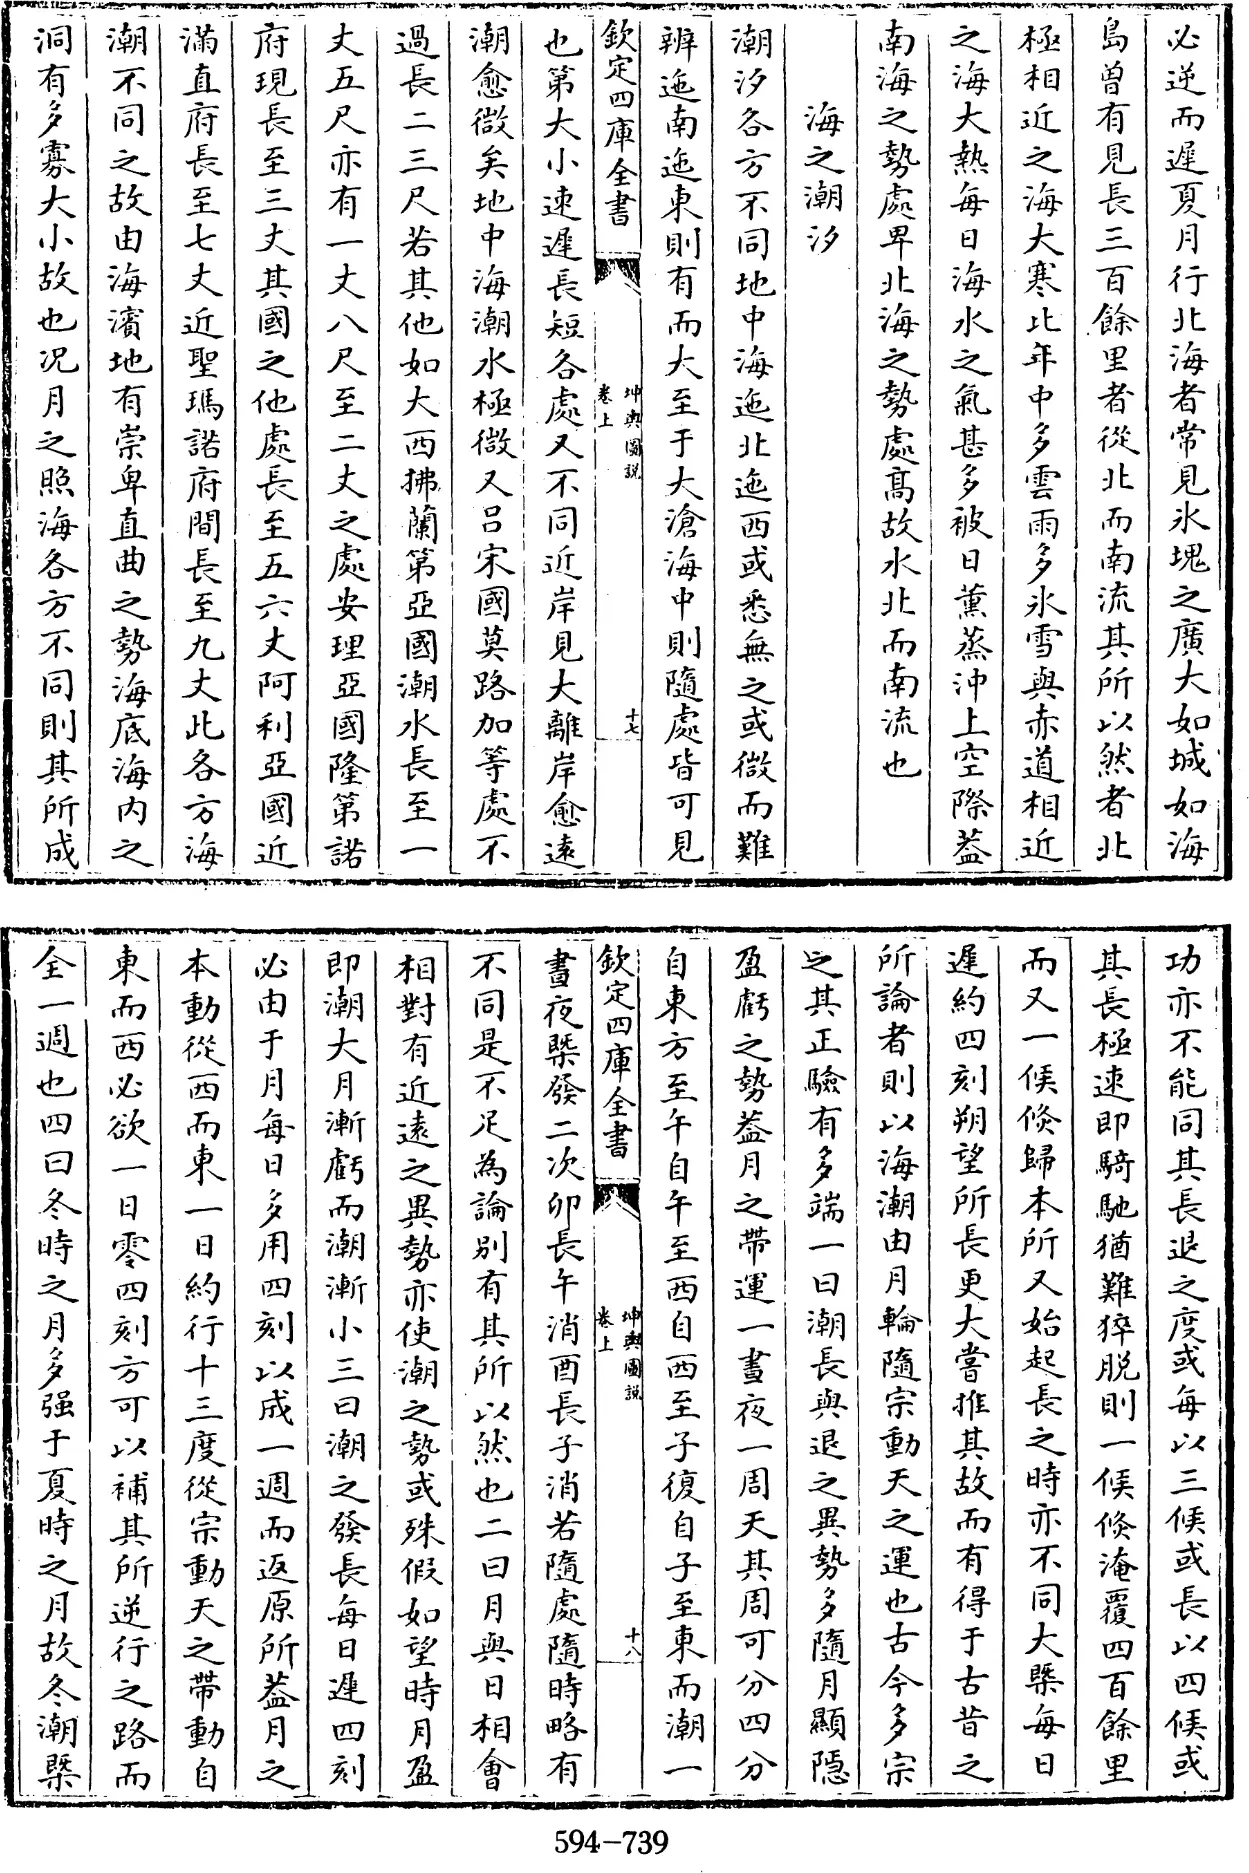 必逆而遲夏月行北海者常見氷塊之廣大如城如海
島曾有見長三百餘里者從北而南流其所以然者北
極相近之海大寒比年中多雲雨多氷雪與赤道相近
之海大熱每日海水之氣甚多被日薰蒸沖上空際葢
南海之勢處卑北海之勢處髙故水北而南流也
海之潮汐
潮汐各方不同地中海迤北迤西或悉無之或微而難
辨迤南迤東則有而大至于大滄海中則隨處皆可見
欽定四庫全書
坤輿圖説
卷上
十七
也第大小速遲長短各處又不同近岸見大離岸愈遠
潮愈微矣地中海潮水極微又吕宋國莫路加等處不
過長二三尺若其他如大西拂蘭第亞國潮水長至一
丈五尺亦有一丈八尺至二丈之處安理亞國隆第諾
府現長至三丈其國之他處長至五六丈阿利亞國近
滿直府長至七丈近聖瑪諾府間長至九丈此各方海
潮不同之故由海濱地有崇卑直曲之勢海底海内之
洞有多寡大小故也况月之照海各方不同則其所成
功亦不能同其長退之度或每以三候或長以四候或
其長極速即騎馳猶難猝脱則一候倐淹覆四百餘里
而又一候倐歸本所又始起長之時亦不同大槩每日
遲約四刻朔望所長更大嘗推其故而有得于古昔之
所論者則以海潮由月輪隨宗動天之運也古今多宗
之其正驗有多端一曰潮長與退之異勢多隨月顯隠
盈虧之勢葢月之帶運一晝夜一周天其周可分四分
自東方至午自午至西自西至子復自子至東而潮一
欽定四庫全書
坤輿圖説
卷上
十八
晝夜槩發二次卯長午消酉長子消若隨處隨時略有
不同是不足為論别有其所以然也二曰月與日相會
相對有近遠之異勢亦使潮之勢或殊假如望時月盈
即潮大月漸虧而潮漸小三曰潮之發長每日遲四刻
必由于月每日多用四刻以成一週而返原所葢月之
本動從西而東一日約行十三度從宗動天之帶動自
東而西必欲一日零四刻方可以補其所逆行之路而
全一週也四曰冬時之月多强于夏時之月故冬潮槩
594-739